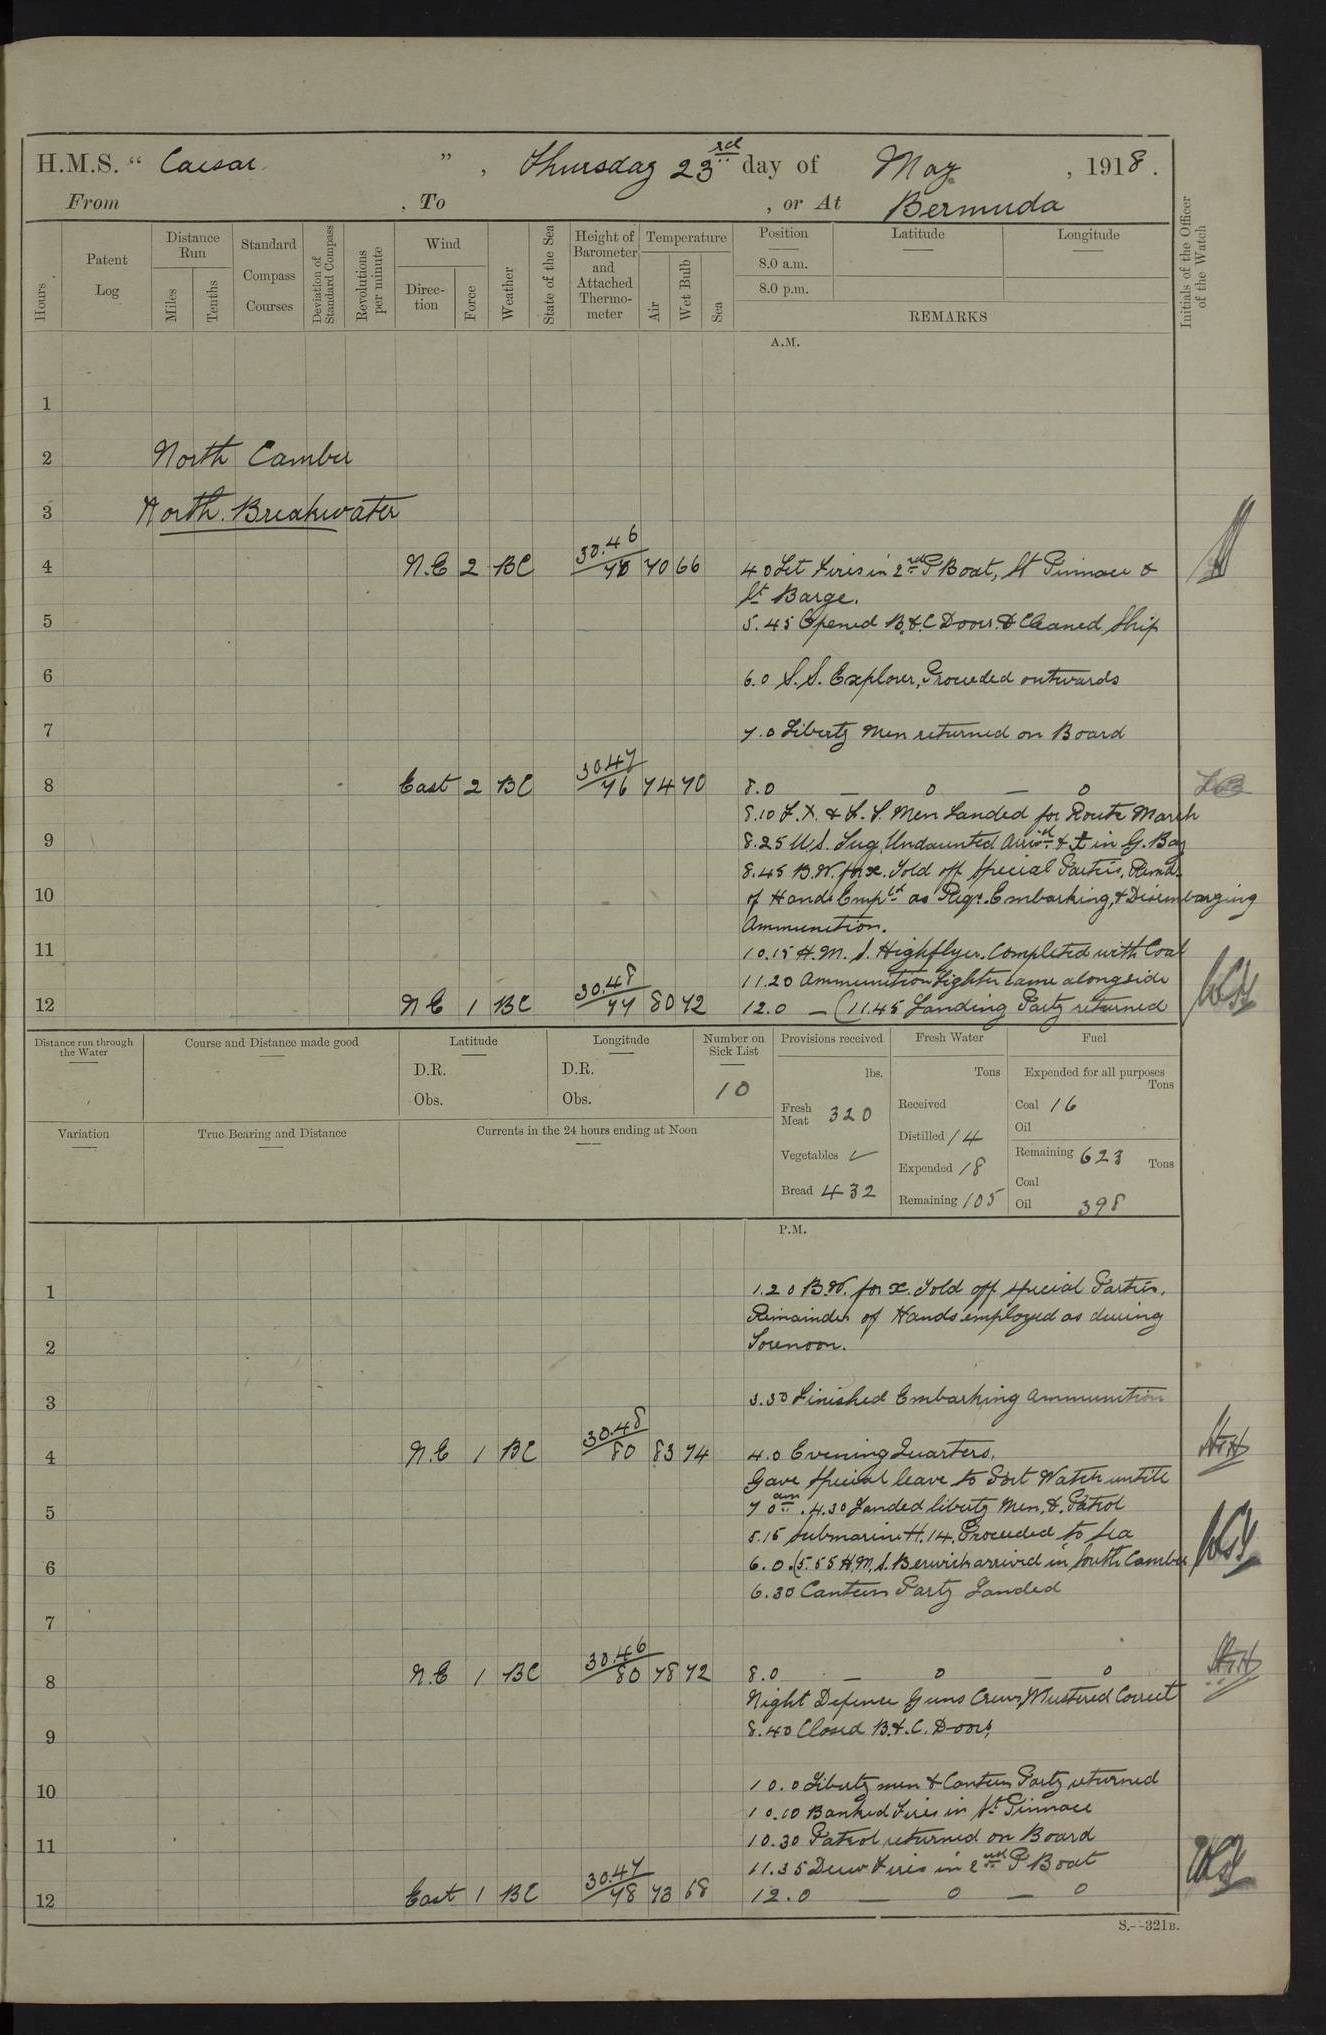 H.M.S. " Caesar ", Thursday 23rd day of May, 1918.
From . To , or At Bermuda
Hours
Patent Log
Distance Run
Miles
Tenths
Standard Compass Courses
Deviation of Standard Compass
Revolutions per minute
Wind
Direction
Force
Weather
State of the Sea
Height of Barometer and Attached Thermometer
Temperature
Air
Wet Bulb
Sea
Position
8.0 a.m.
8.0 p.m.
Latitude
Longitude
REMARKS
Initials of the Officer of the Watch
A.M.
1
2 North Camber
3 North Breakwater
4 N.E 2 BC 30.46 70 66 4.0 Lit Fires in 2nd P Boat, St Pinnace &
St Barge.
5 5.45 Opened B.&C Doors & Cleaned Ship
6 6.0 S.S. Explorer, Proceeded outwards
7 7.0 Liberty Men returned on Board
8 East 2 BC 30.47 76 74 70 8.0 — 0 — 0
8.10 & Men Landed for Route March
9 8.25 U.S. Tug Undaunted Arrivd & in G. Bay
8.45 B.W. for x. Told off Special Parties. Remdr
10 of Hands Empld as Reqr. Embarking, & Disembarging
Ammunition.
11 10.15 H.M.S. Highflyer. Completed with Coal
11.20 Ammunition Lighter came alongside
12 N E 1 BC 30.48 77 80 72 12.0 — (11.45 Landing Party returned
Distance run through the Water
Course and Distance made good
Latitude
D.R.
Obs.
Longitude
D.R.
Obs.
Number on Sick List
10
Provisions received
lbs.
Fresh Meat 320
Vegetables ✓
Bread 432
Fresh Water
Tons
Received
Distilled 14
Expended 18
Remaining 105
Fuel
Expended for all purposes
Tons
Coal 16
Oil
Remaining 623 Tons
Coal
Oil 398
Variation
True Bearing and Distance
Currents in the 24 hours ending at Noon
P.M.
1 1.20 B.W. for x. Told off special Parties.
Remainder of Hands employed as during
2 Forenoon.
3 3.30 Finished Embarking Ammunition
4 N.E 1 BC 30.48 80 83 74 4.0 Evening Quarters.
Gave Special leave to Port Watch untill
5 7.0 am. 4.30 Landed liberty Men, & Patrol
5.15 Submarine H.14. Proceeded to Sea
6 6.0. (5.55 H.M.S. Berwick arrived in South Camber
6.30 Canteen Party Landed
7
8 N.E 1 BC 30.46 80 78 72 8.0 — 0 — 0
Night Defence Guns Crews Mustered Correct
9 8.40 Closed B.&.C. Doors
10 10.0 Liberty men & Canteen Party returned
10.10 Banked Fires in St Pinnace
11 10.30 Patrol returned on Board
11.35 Drew Fires in 2nd P Boat
12 East 1 BC 30.47 78 73 68 12.0 — 0 — 0
S.—321B.